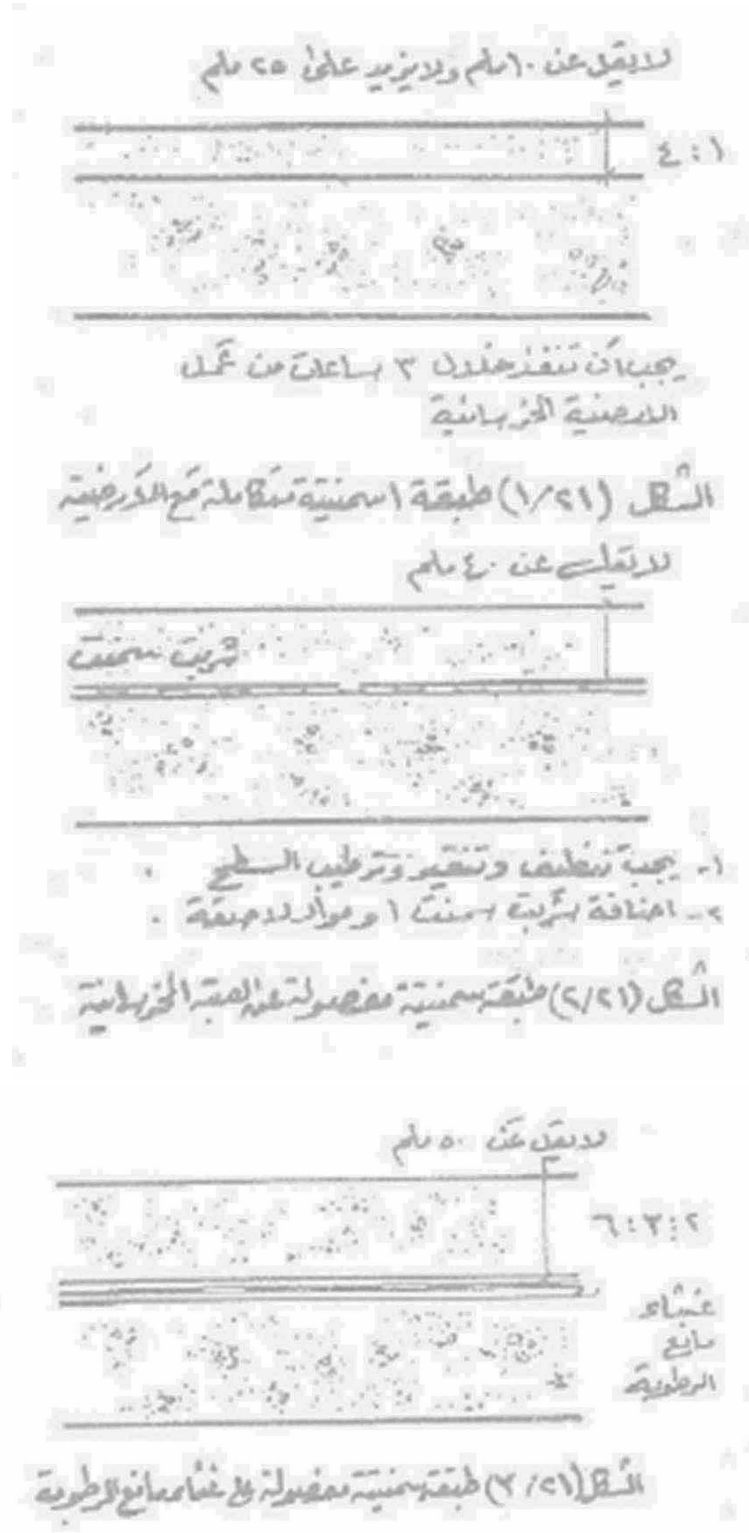 لا يقل عن ١٠ ملم ولا يزيد على ٢٥ ملم
١ : ٤
يجب أن تنفذ خلال ٣ ساعات من عمل
الارضية الخرسانية
الشكل (١/٢١) طبقة اسمنتية متكاملة مع الأرضية
لا يقل عن ٤٠ ملم
شربت سمنت
١- يجب تنظيف وتنقير وترطيب السطح .
٢- اضافة شربت سمنت او مواد لاصقة .
الشكل (٢/٢١) طبقة سمنتية مفصولة عن الصبة الخرسانية
لا يقل عن ٥٠ ملم
٢ : ٣ : ٦
غشاء
مانع
الرطوبة
الشكل (٣/٢١) طبقة سمنتية مفصولة على غشاء مانع الرطوبة